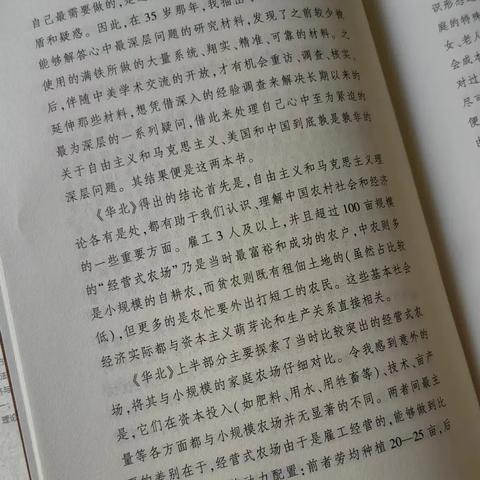 自己最需要做的,是
盾和疑惑。因此,在35岁那年,我
能够解答心中最深层问题的研究材料,发现了之前较少被
使用的满铁所做的大量系统、翔实、精准、可靠的材料。之
后,伴随中美学术交流的开放,才有机会重访、调查、核实、
延伸那些材料,想凭借深入的经验调查来解决长期以来的
最为深层的一系列疑问,借此来处理自己心中至为紧迫的
关于自由主义和马克思主义、美国和中国到底孰是孰非的
深层问题。其结果便是这两本书。
《华北》得出的结论首先是,自由主义和马克思主义理
论各有是处,都有助于我们认识、理解中国农村社会和经济
的一些重要方面。雇工3人及以上,并且超过100亩规模
的“经营式农场”乃是当时最富裕和成功的农户,中农则多
是小规模的自耕农,而贫农则既有租佃土地的(虽然占比较
低),但更多的是农忙要外出打短工的农民。这些基本社会
经济实际都与资本主义萌芽论和生产关系直接相关。
《华北》上半部分主要探索了当时比较突出的经营式农
场,将其与小规模的家庭农场仔细对比。令我感到意外的
是,它们在资本投入(如肥料、用水、用牲畜等)、技术、亩产
量等各方面都与小规模农场并无显著的不同。两者间最主
的差别在于,经营式农场由于是雇工经营的,能够做到比
动力配置:前者劳均种植20—25亩,后
识形态
庭的特殊
女、老人
会成本
对过
尽可
便
理论